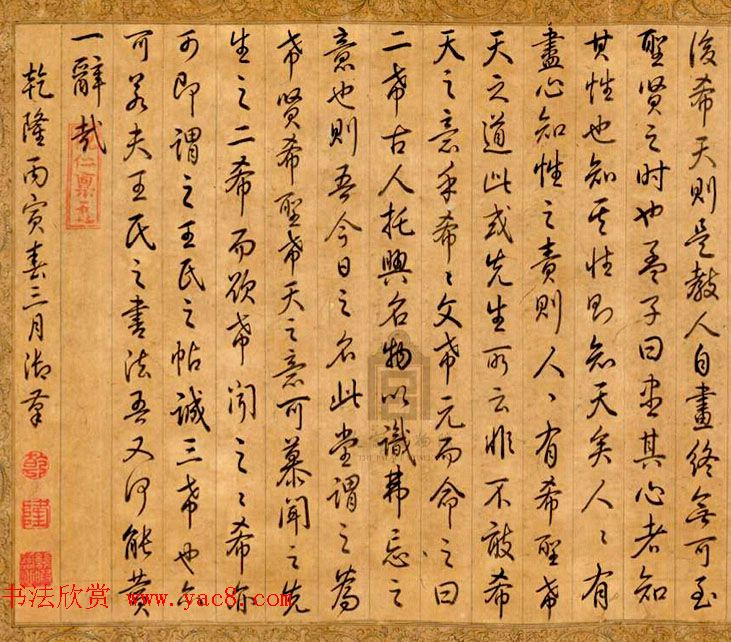 後希天則是教人自畫終無可至
聖賢之時也孟子曰盡其心者知
其性也知其性則知天矣人〻有
盡心知性之責則人〻有希聖希
天之道此或先生所云非不敢希
天之意乎希〻文希元而命之曰
二希古人托興名物以識弗忘之
意也則吾今日之名此堂謂之為
希賢希聖希天之意可慕聞之先
生之二希而欲希聞之〻希亦
可即謂之王氏之帖誠三希也亦
可若夫王氏之書法吾又何能贊
一辭哉
乾隆丙寅春三月御筆
乾
隆
书法欣赏 www.yac8.com